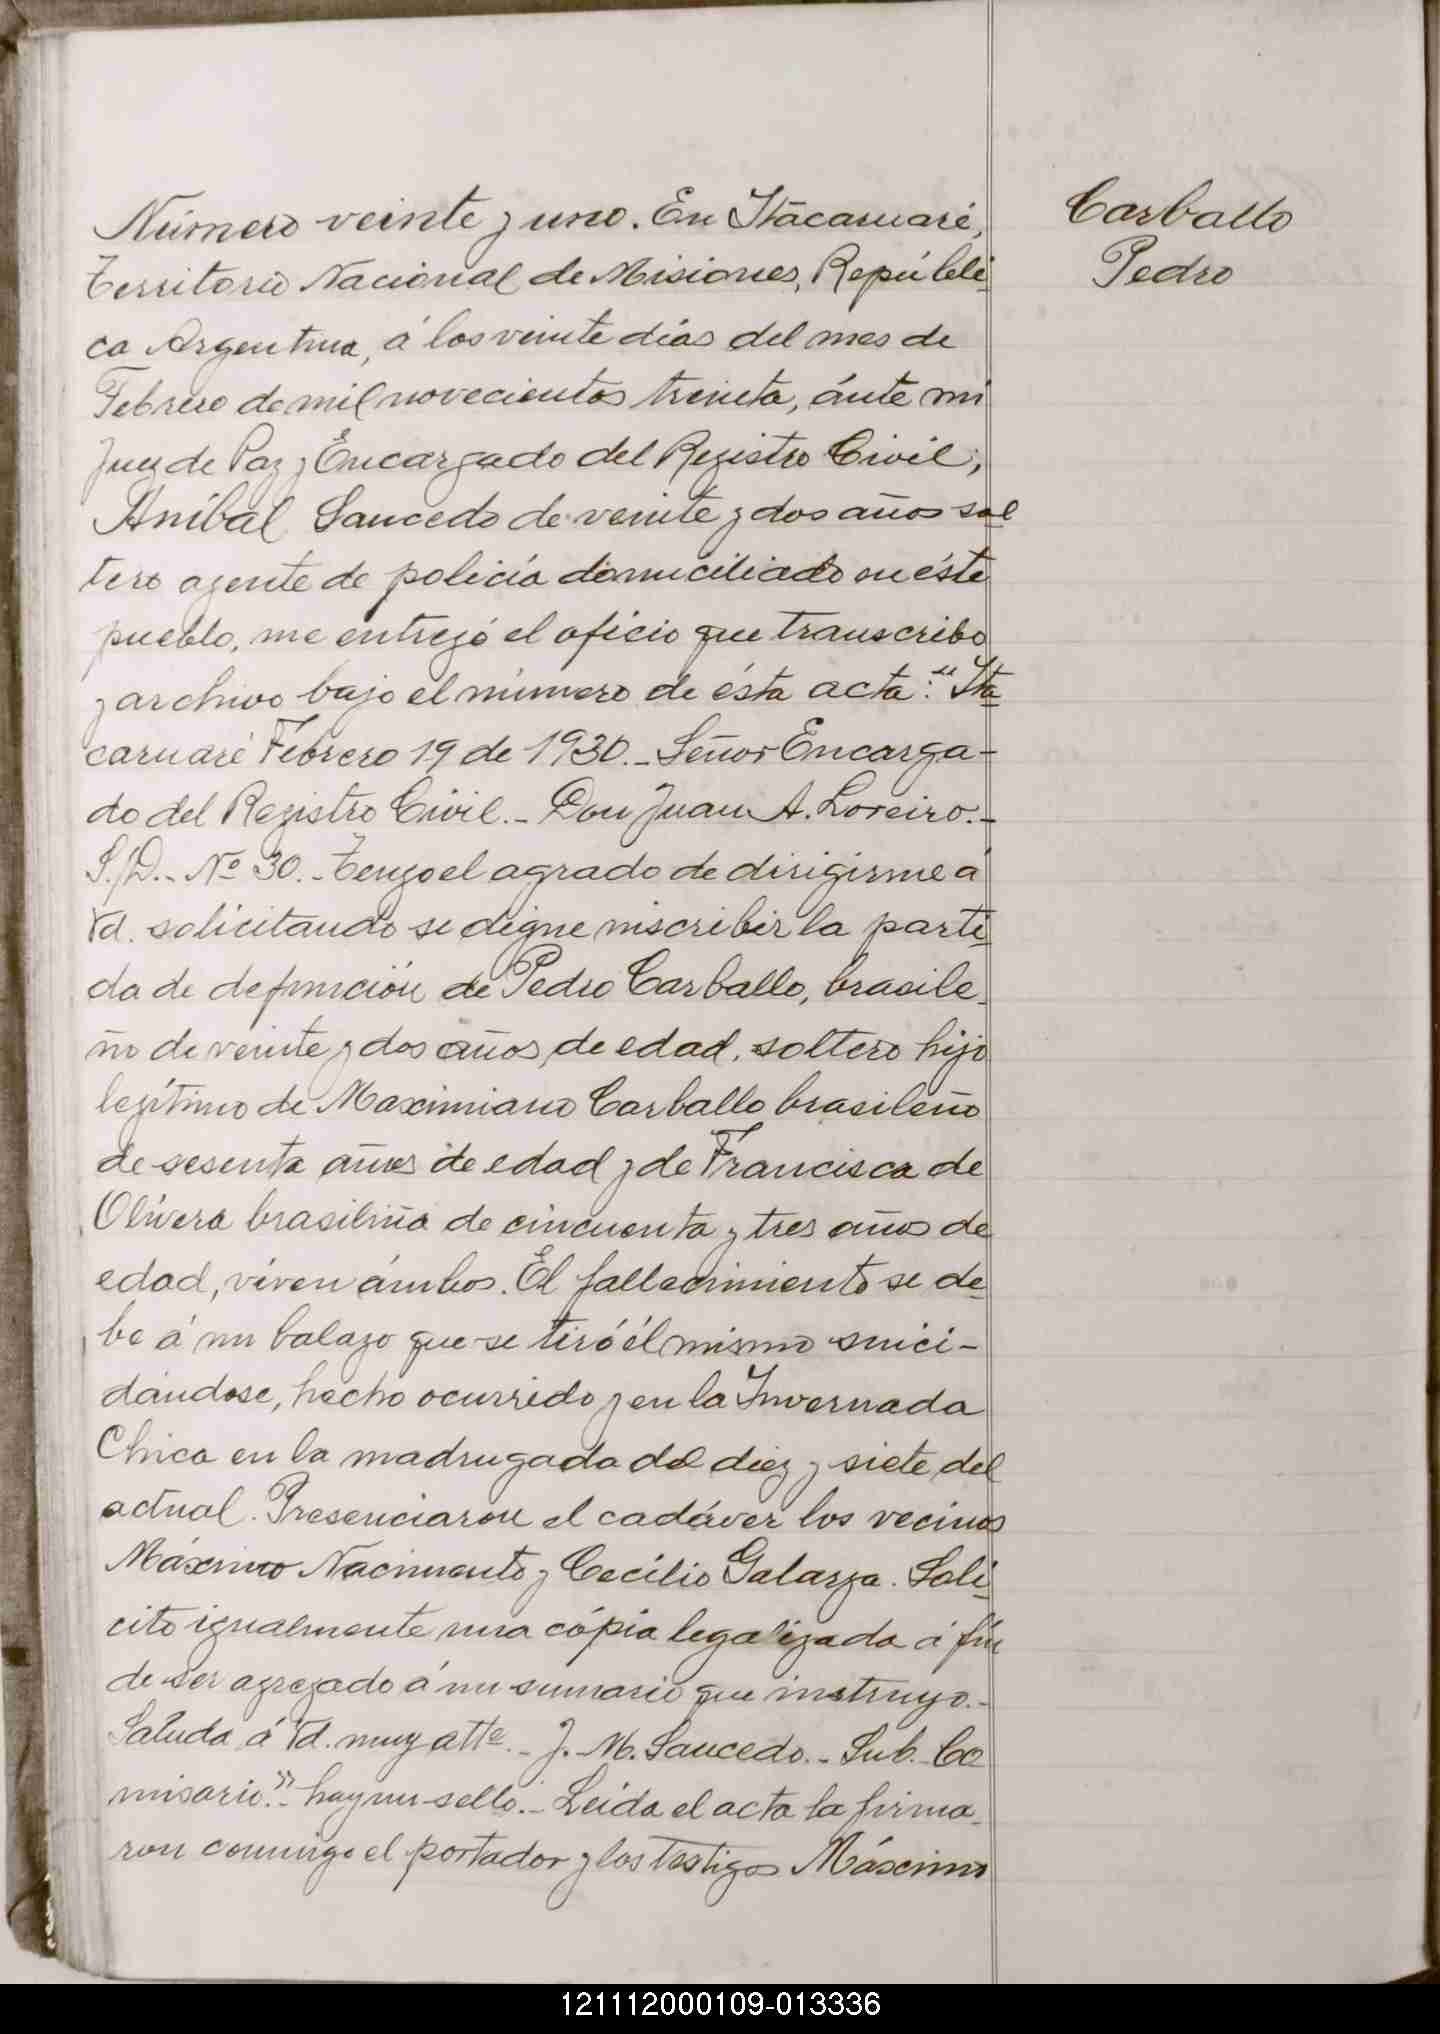 Número veinte y uno. En Itacaruaré,
Territorio Nacional de Misiones, Repúbli
ca Argentina, á los veinte días del mes de
Febrero de mil novecientos treinta, ánte mi
Juez de Paz y Encargado del Registro Civil,
Aníbal Saucedo de veinte y dos años sol
tero agente de policía domiciliado en éste
pueblo, me entregó el oficio que transcribo
y archivo bajo el número de ésta acta: "Ita
caruaré Febrero 19 de 1930.- Señor Encarga-
do del Registro Civil.- Don Juan A. Loreiro.-
S./D.- Nº 30.- Tengo el agrado de dirigirme á
Vd. solicitando se digne inscribir la parti
da de defunción de Pedro Carballo, brasile
ño de veinte y dos años de edad, soltero hijo
legítimo de Maximiano Carballo brasileño
de sesenta años de edad y de Francisca de
Olivera brasiliña de cincuenta y tres años de
edad, viven ámbos. El fallecimiento se de
be á un balazo que se tiró él mismo suici-
dándose, hecho ocurrido y en la Invernada
Chica en la madrugada del diez y siete del
actual. Presenciaron el cadáver los vecinos
Máximo Nacimento y Cecílio Galarza. Soli
cito igualmente una cópia legalizada á fin
de ser agregado á un sumario que instruyo.-
Saluda á Vd. muy atte.- J. M. Saucedo.- Sub. Co
misario."- hay un sello.- Leida el acta la firma
ron conmigo el portador y los testigos Máximo
Carballo
Pedro
121112000109-013336